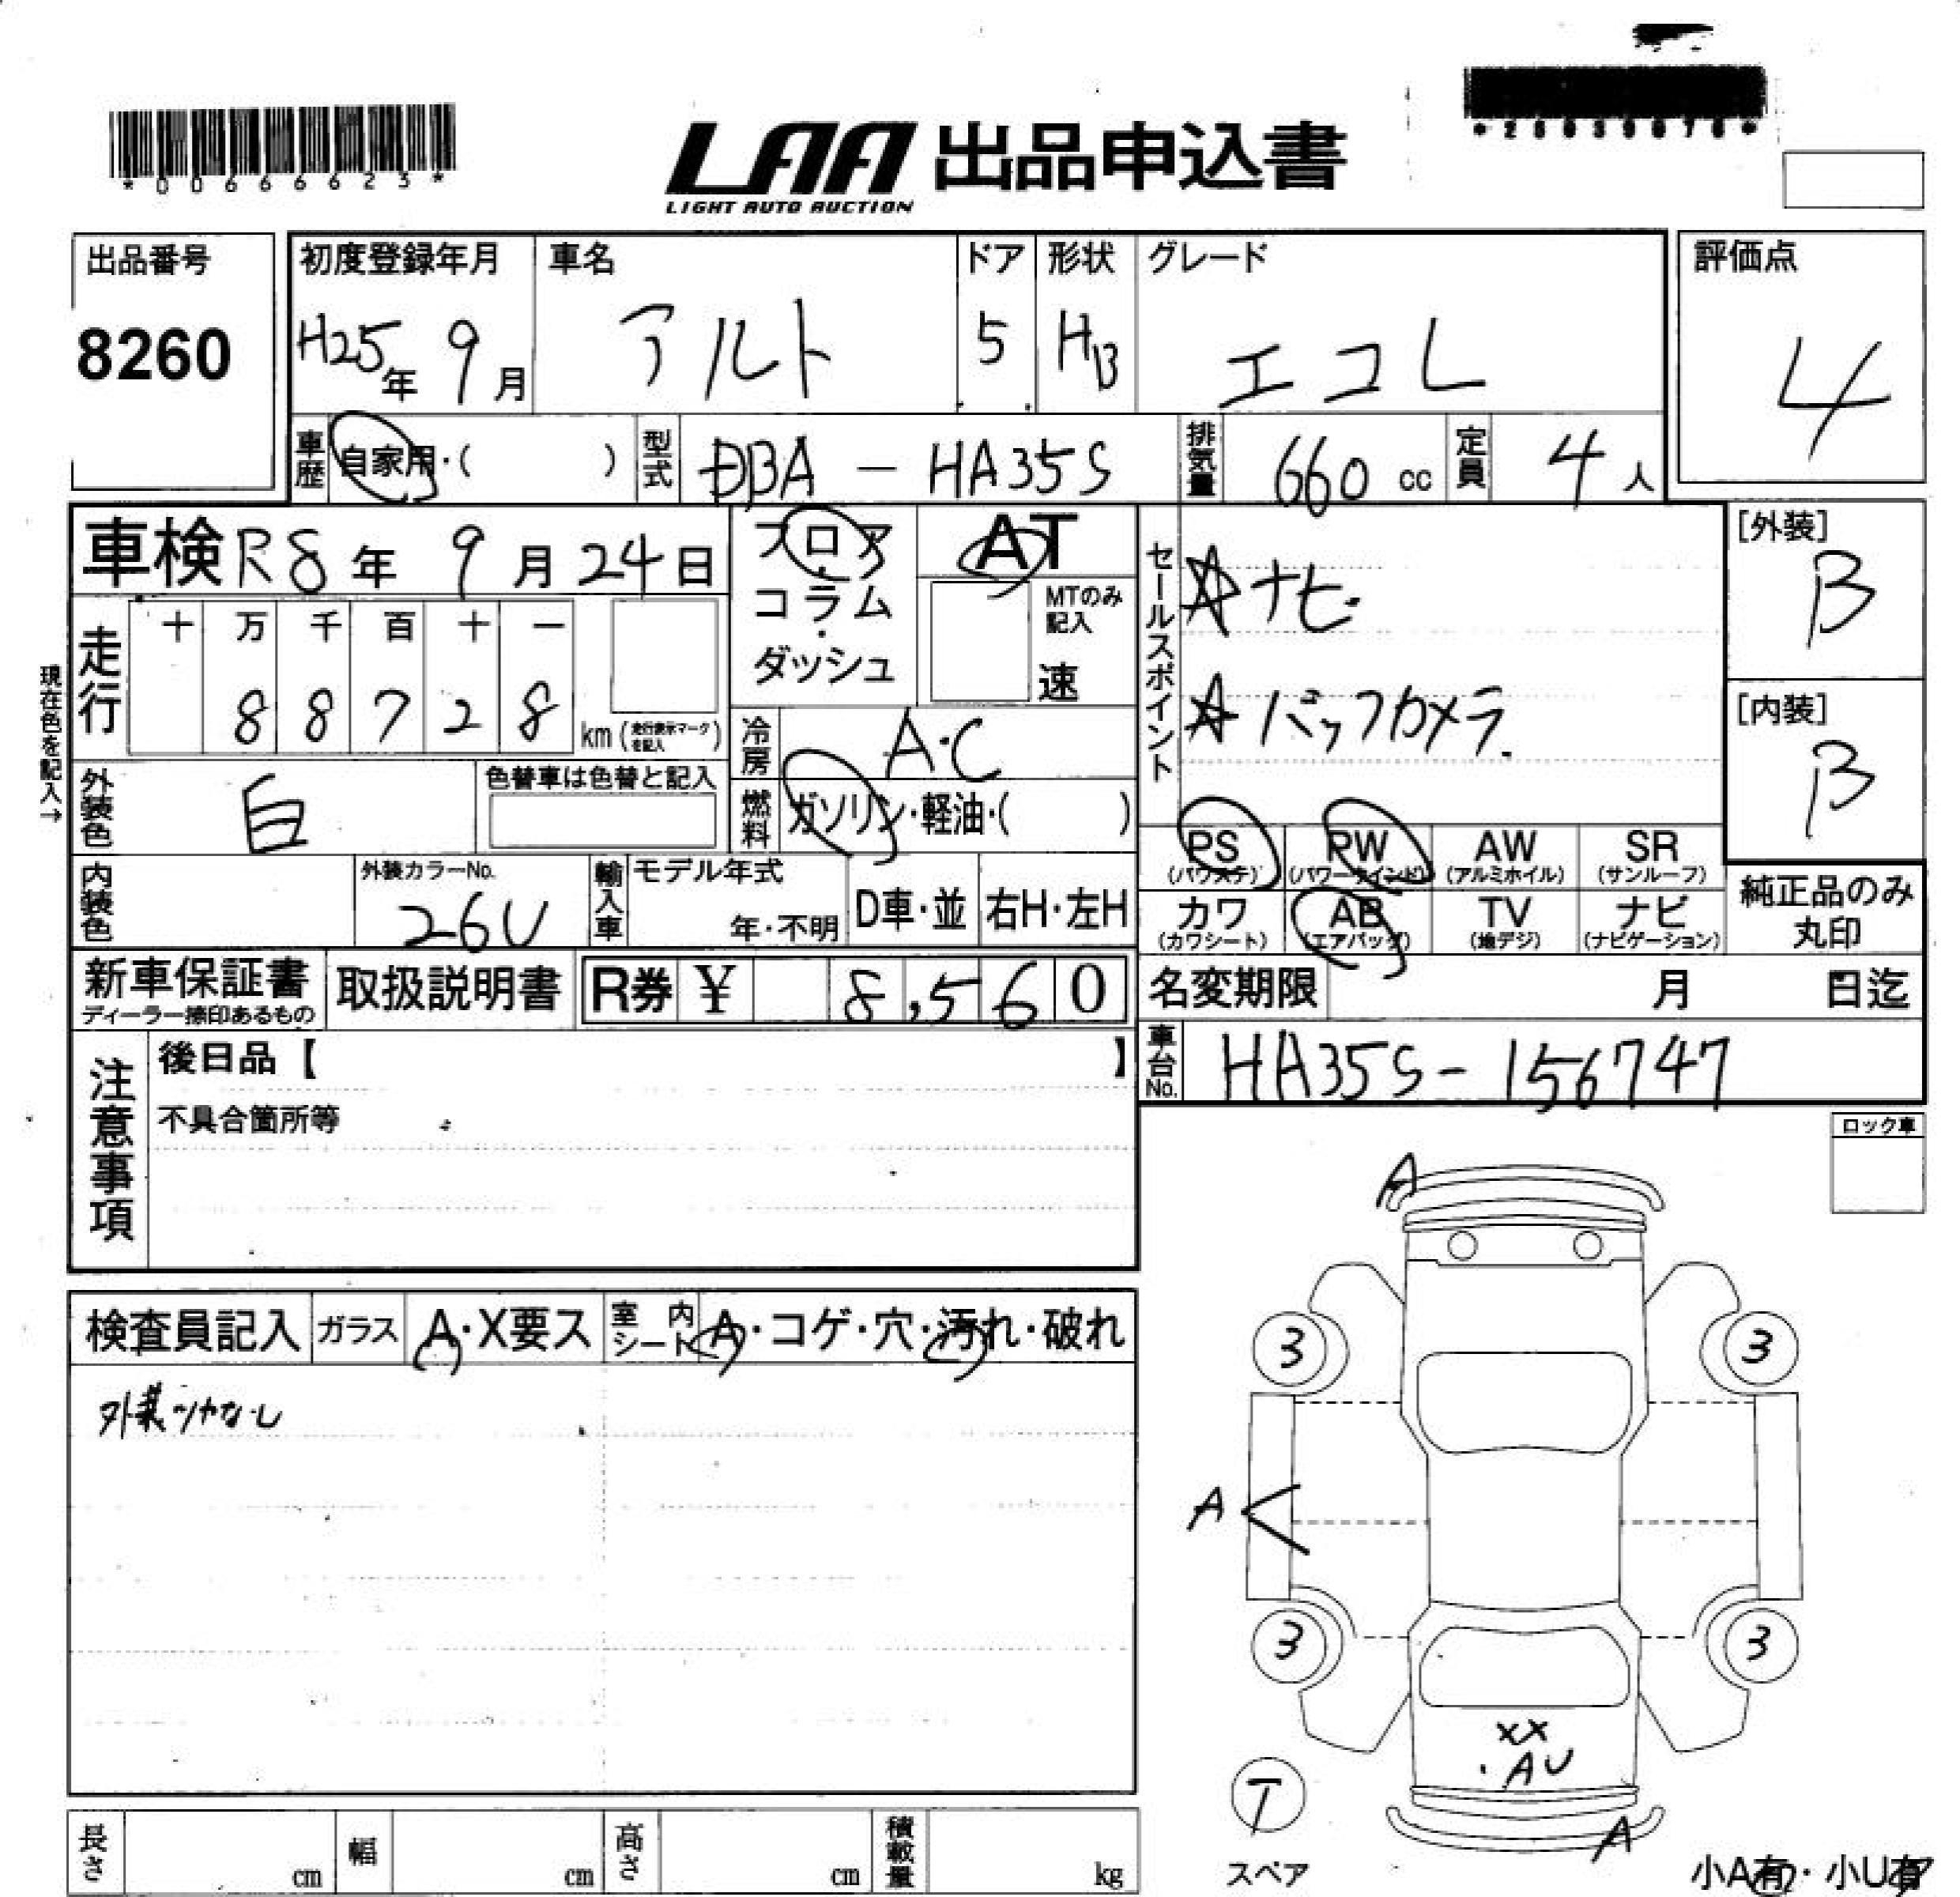 *00666623*
LAA 出品申込書
LIGHT AUTO AUCTION
出品番号
8260
初度登録年月
H25年 9月
車名
アルト
ドア
5
形状
HB
グレード
エコL
評価点
4
車歴 自家用・( )
型式 DBA - HA35S
排気量 660 cc
定員 4人
車検 R8年 9月 24日
フロア・コラム・ダッシュ
AT
MTのみ記入
速
セールスポイント
☆ナビ
☆バックカメラ
[外装]
B
[内装]
B
現在色を記入→
走行
十 万 千 百 十 一
8 8 7 2 8 km (走行表示マークを記入)
冷房 A・C
燃料 ガソリン・軽油・( )
外装色 白
色替車は色替と記入
PS (パワステ)
PW (パワーウインド)
AW (アルミホイル)
SR (サンルーフ)
カワ (カワシート)
AB (エアバッグ)
TV (地デジ)
ナビ (ナビゲーション)
純正品のみ丸印
内装色
外装カラーNo.
26U
輸入車
モデル年式
年・不明
D車・並
右H・左H
新車保証書
ディーラー捺印あるもの
取扱説明書
R券 ¥ 8,560
名変期限 月 日迄
車台No. HA35S-156747
注意事項
後日品【 】
不具合箇所等
ロック車
検査員記入
ガラス A・X要ス
室内シート A・コゲ・穴・汚れ・破れ
外装ツヤなし
A
3 3
A
3 3
XX
AU
T
スペア
A
小A有・小U有
長さ cm
幅 cm
高さ cm
積載量 kg